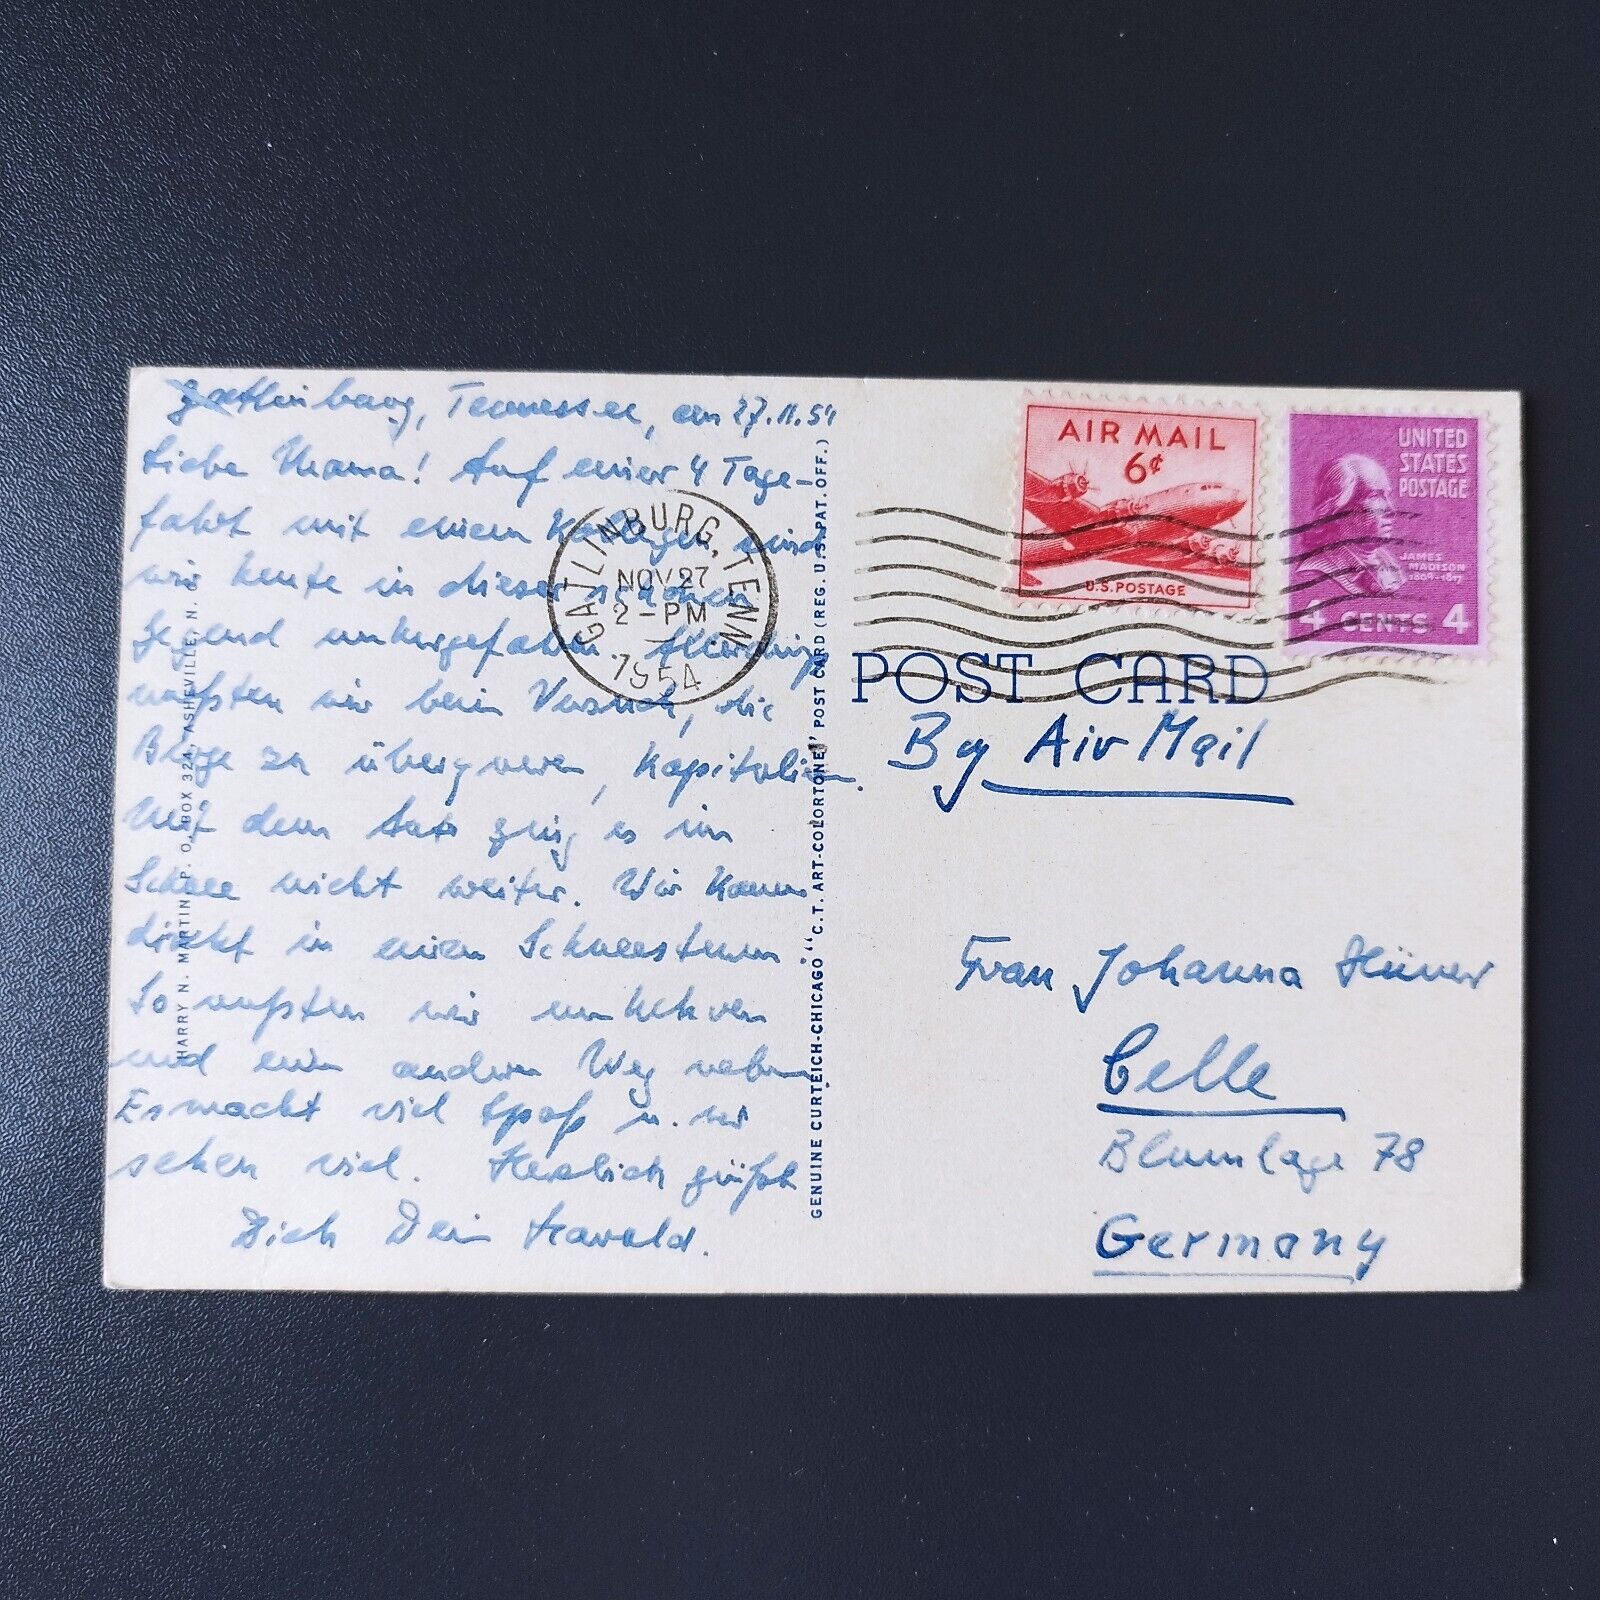 Gatlinburg, Tennessee, am 27.11.54
Liebe Mama! Auf einer 4 Tage-
fahrt mit einem Kollegen sind
wir heute in dieser schönen
Gegend umhergefahren. Allerdings
mußten wir beim Versuch, die
Berge zu überqueren, kapitulieren.
Mit dem Auto ging es im
Schnee nicht weiter. Wir kamen
direkt in einen Schneesturm.
So mußten wir umkehren
und einen anderen Weg nehmen
Es macht viel Spaß u. wir
sehen viel. Herzlich grüßt
Dich Dein Harald.
HARRY N. MARTIN, P. O. BOX 324, ASHEVILLE, N. C.
GATLINBURG, TENN.
NOV 27
2-PM
1954
GENUINE CURTEICH-CHICAGO "C.T. ART-COLORTONE" POST CARD (REG. U.S. PAT. OFF.)
AIR MAIL
6¢
U.S. POSTAGE
UNITED
STATES
POSTAGE
JAMES
MADISON
1809-1817
4 CENTS 4
POST CARD
By Air Mail
Frau Johanna Hüner
Celle
Blumlage 78
Germany